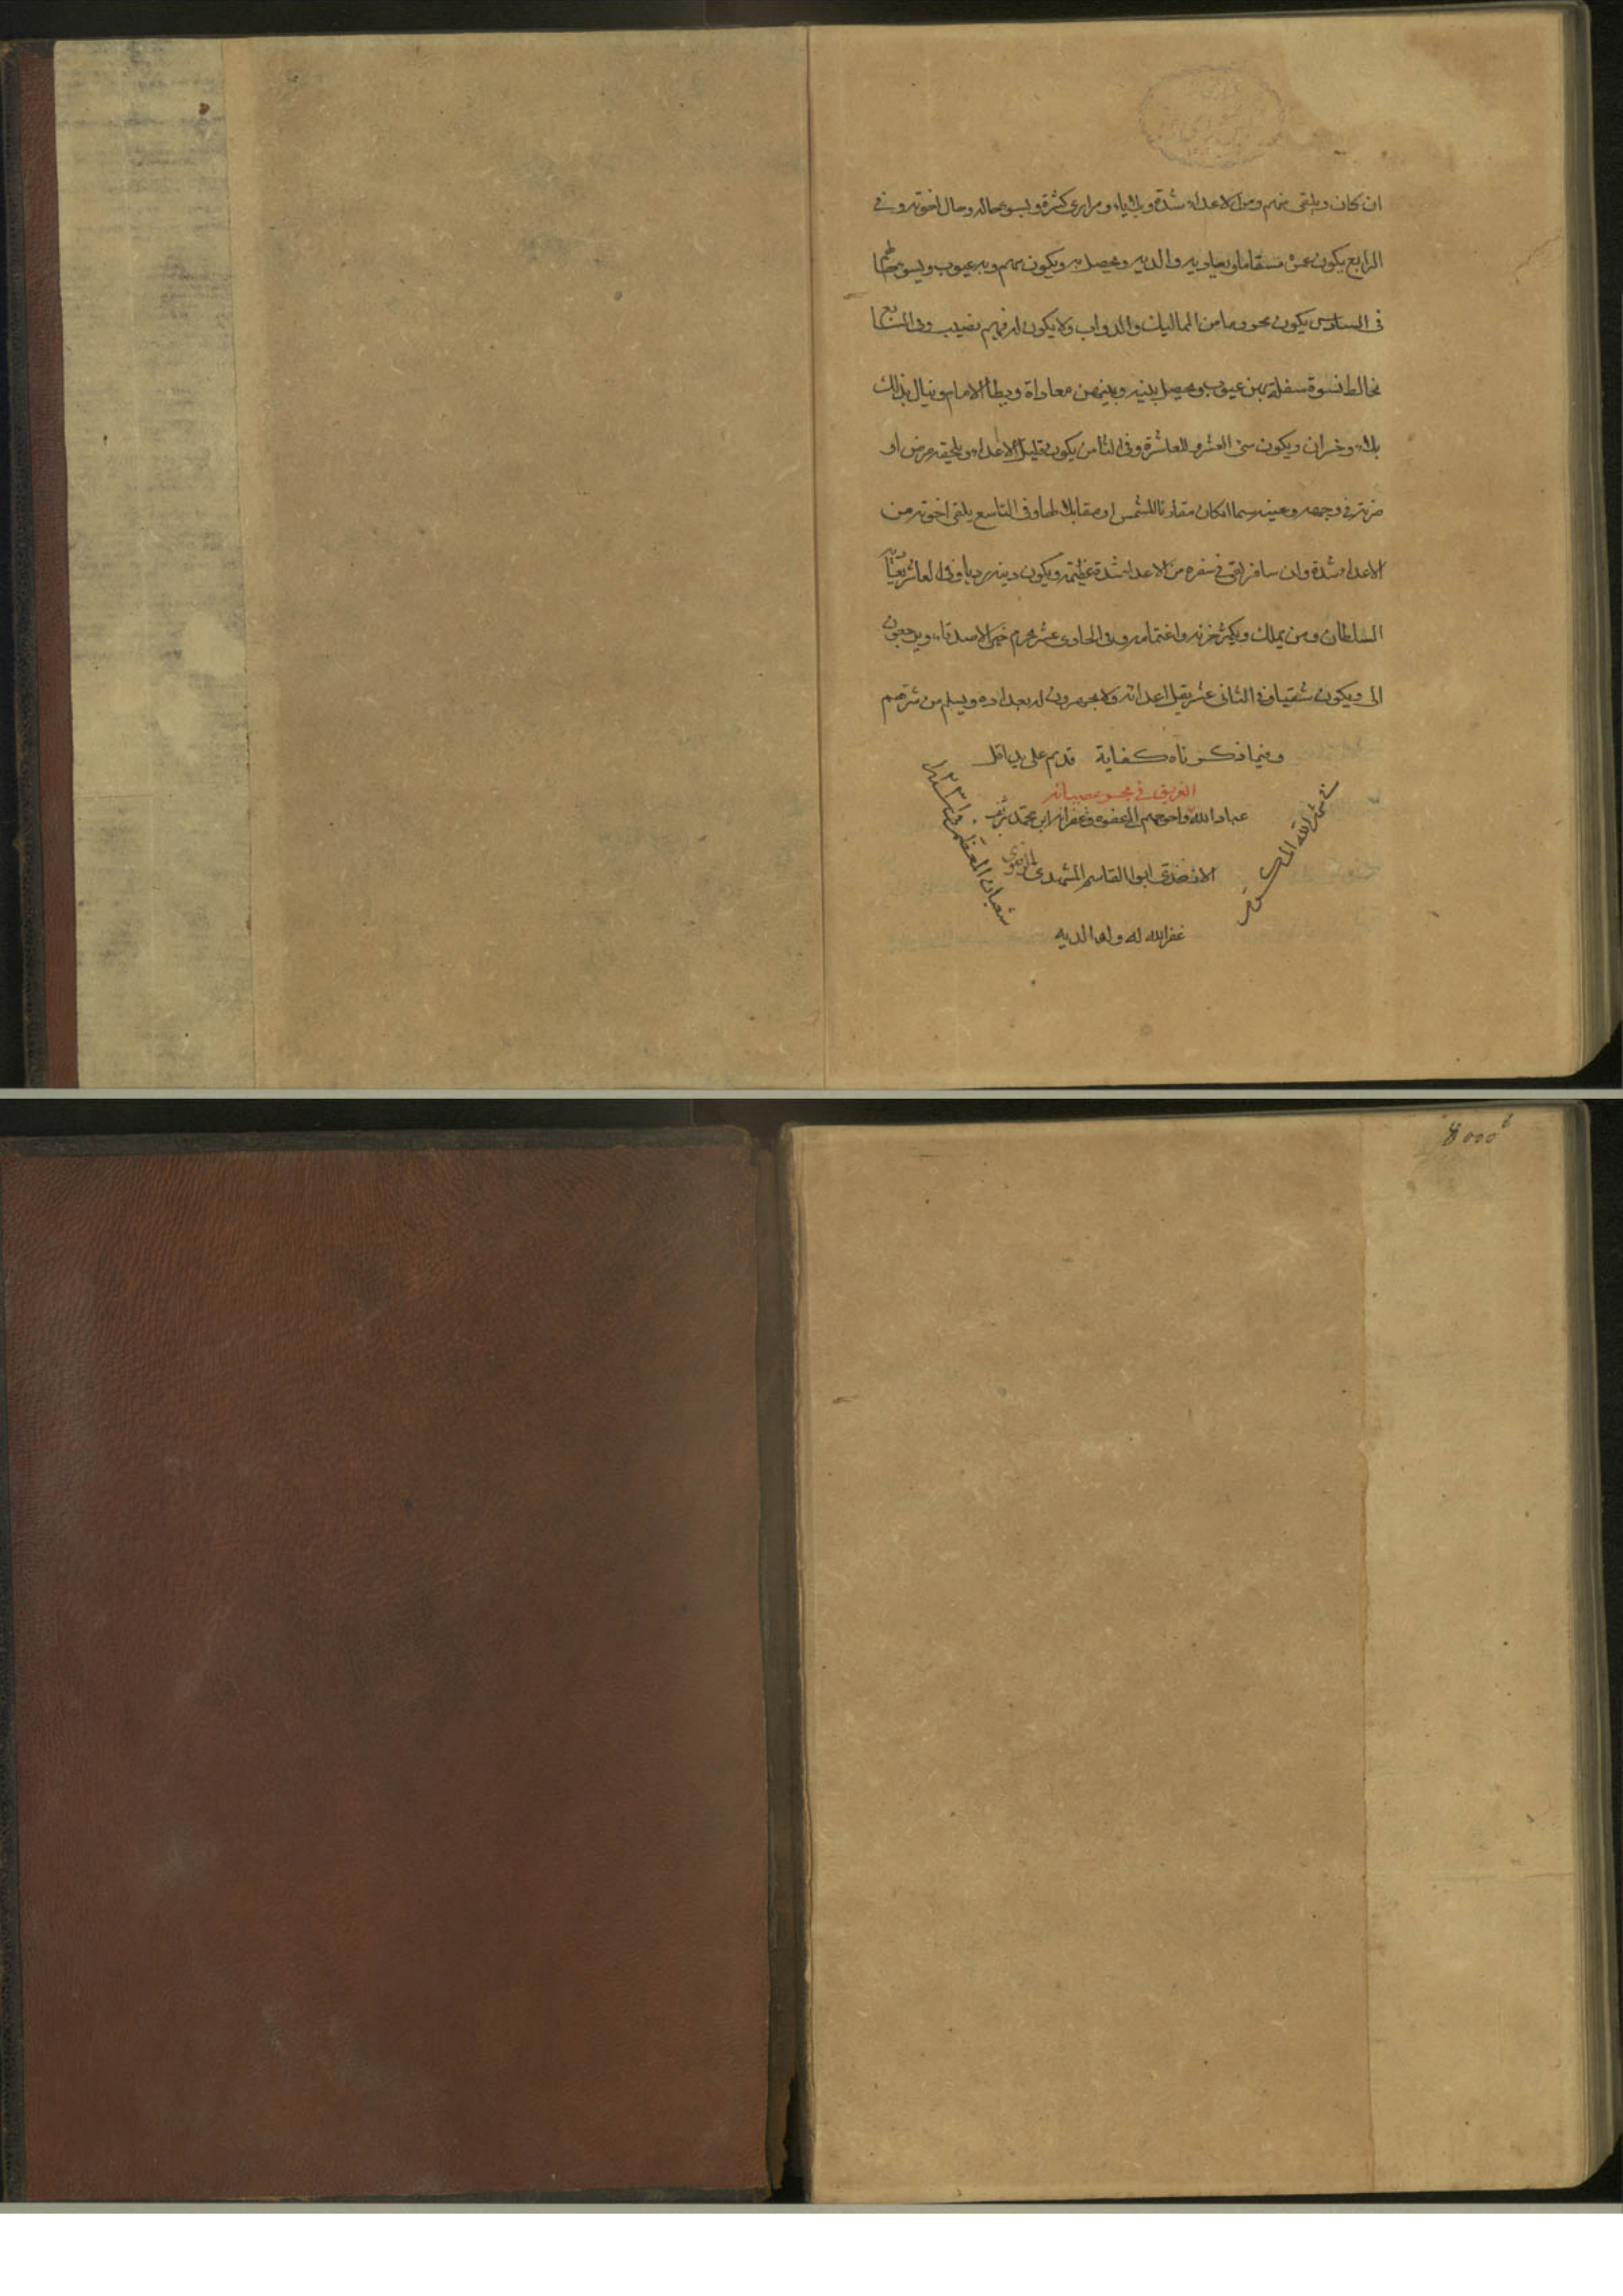 ان كان ويلقى منهم ومن الاعداء شدة وبلايا ومرارى كثيرة ويسوء حاله وحال اخوته وفى
الرابع يكون عمره مسقاما ويعاديه والديه ويحصل به ويكون بهم وبه عيوب ويسوء
فى السادس يكون محروما من المماليك والدواب ولا يكون له فيهم نصيب وفى السابع
يخالط نسوة سفلة بهن عيوب ويحصل بينه وبينهن معاداة ويطأ الاماء وينال بذلك
بلاء وخسران ويكون سئ العشرة للعاشرة وفى الثامن يكون قليل الاعداء ويلحقه مرض او
ضربة فى وجهه وعينه سيما ان كان مقارنا للشمس او مقابلا لها وفى التاسع يلقى اخوته من
الاعداء شدة وان سافر لقى فى سفره من الاعداء شدة عظيمة ويكون دينه رديا وفى العاشر
السلطان ومن يملك ويكثر حزنه واغتمامه وفى الحادى عشر يحرم خير الاصدقاء ويرجعون
الى ويكون شقيا وفى الثانى عشر يقل اعدائه ولا يجهرون له بعداوة ويسلم من شرهم
وفيما ذكرناه كفاية قد تم على يد اقل
الغريق فى بحر عصيانه
عباد الله واحوجهم الى عفوه وغفرانه ابن محمد
ابوا القاسم المشهدى الرضوى
غفر الله له ولوالديه
شهر الله
شعبان المعظم
8000